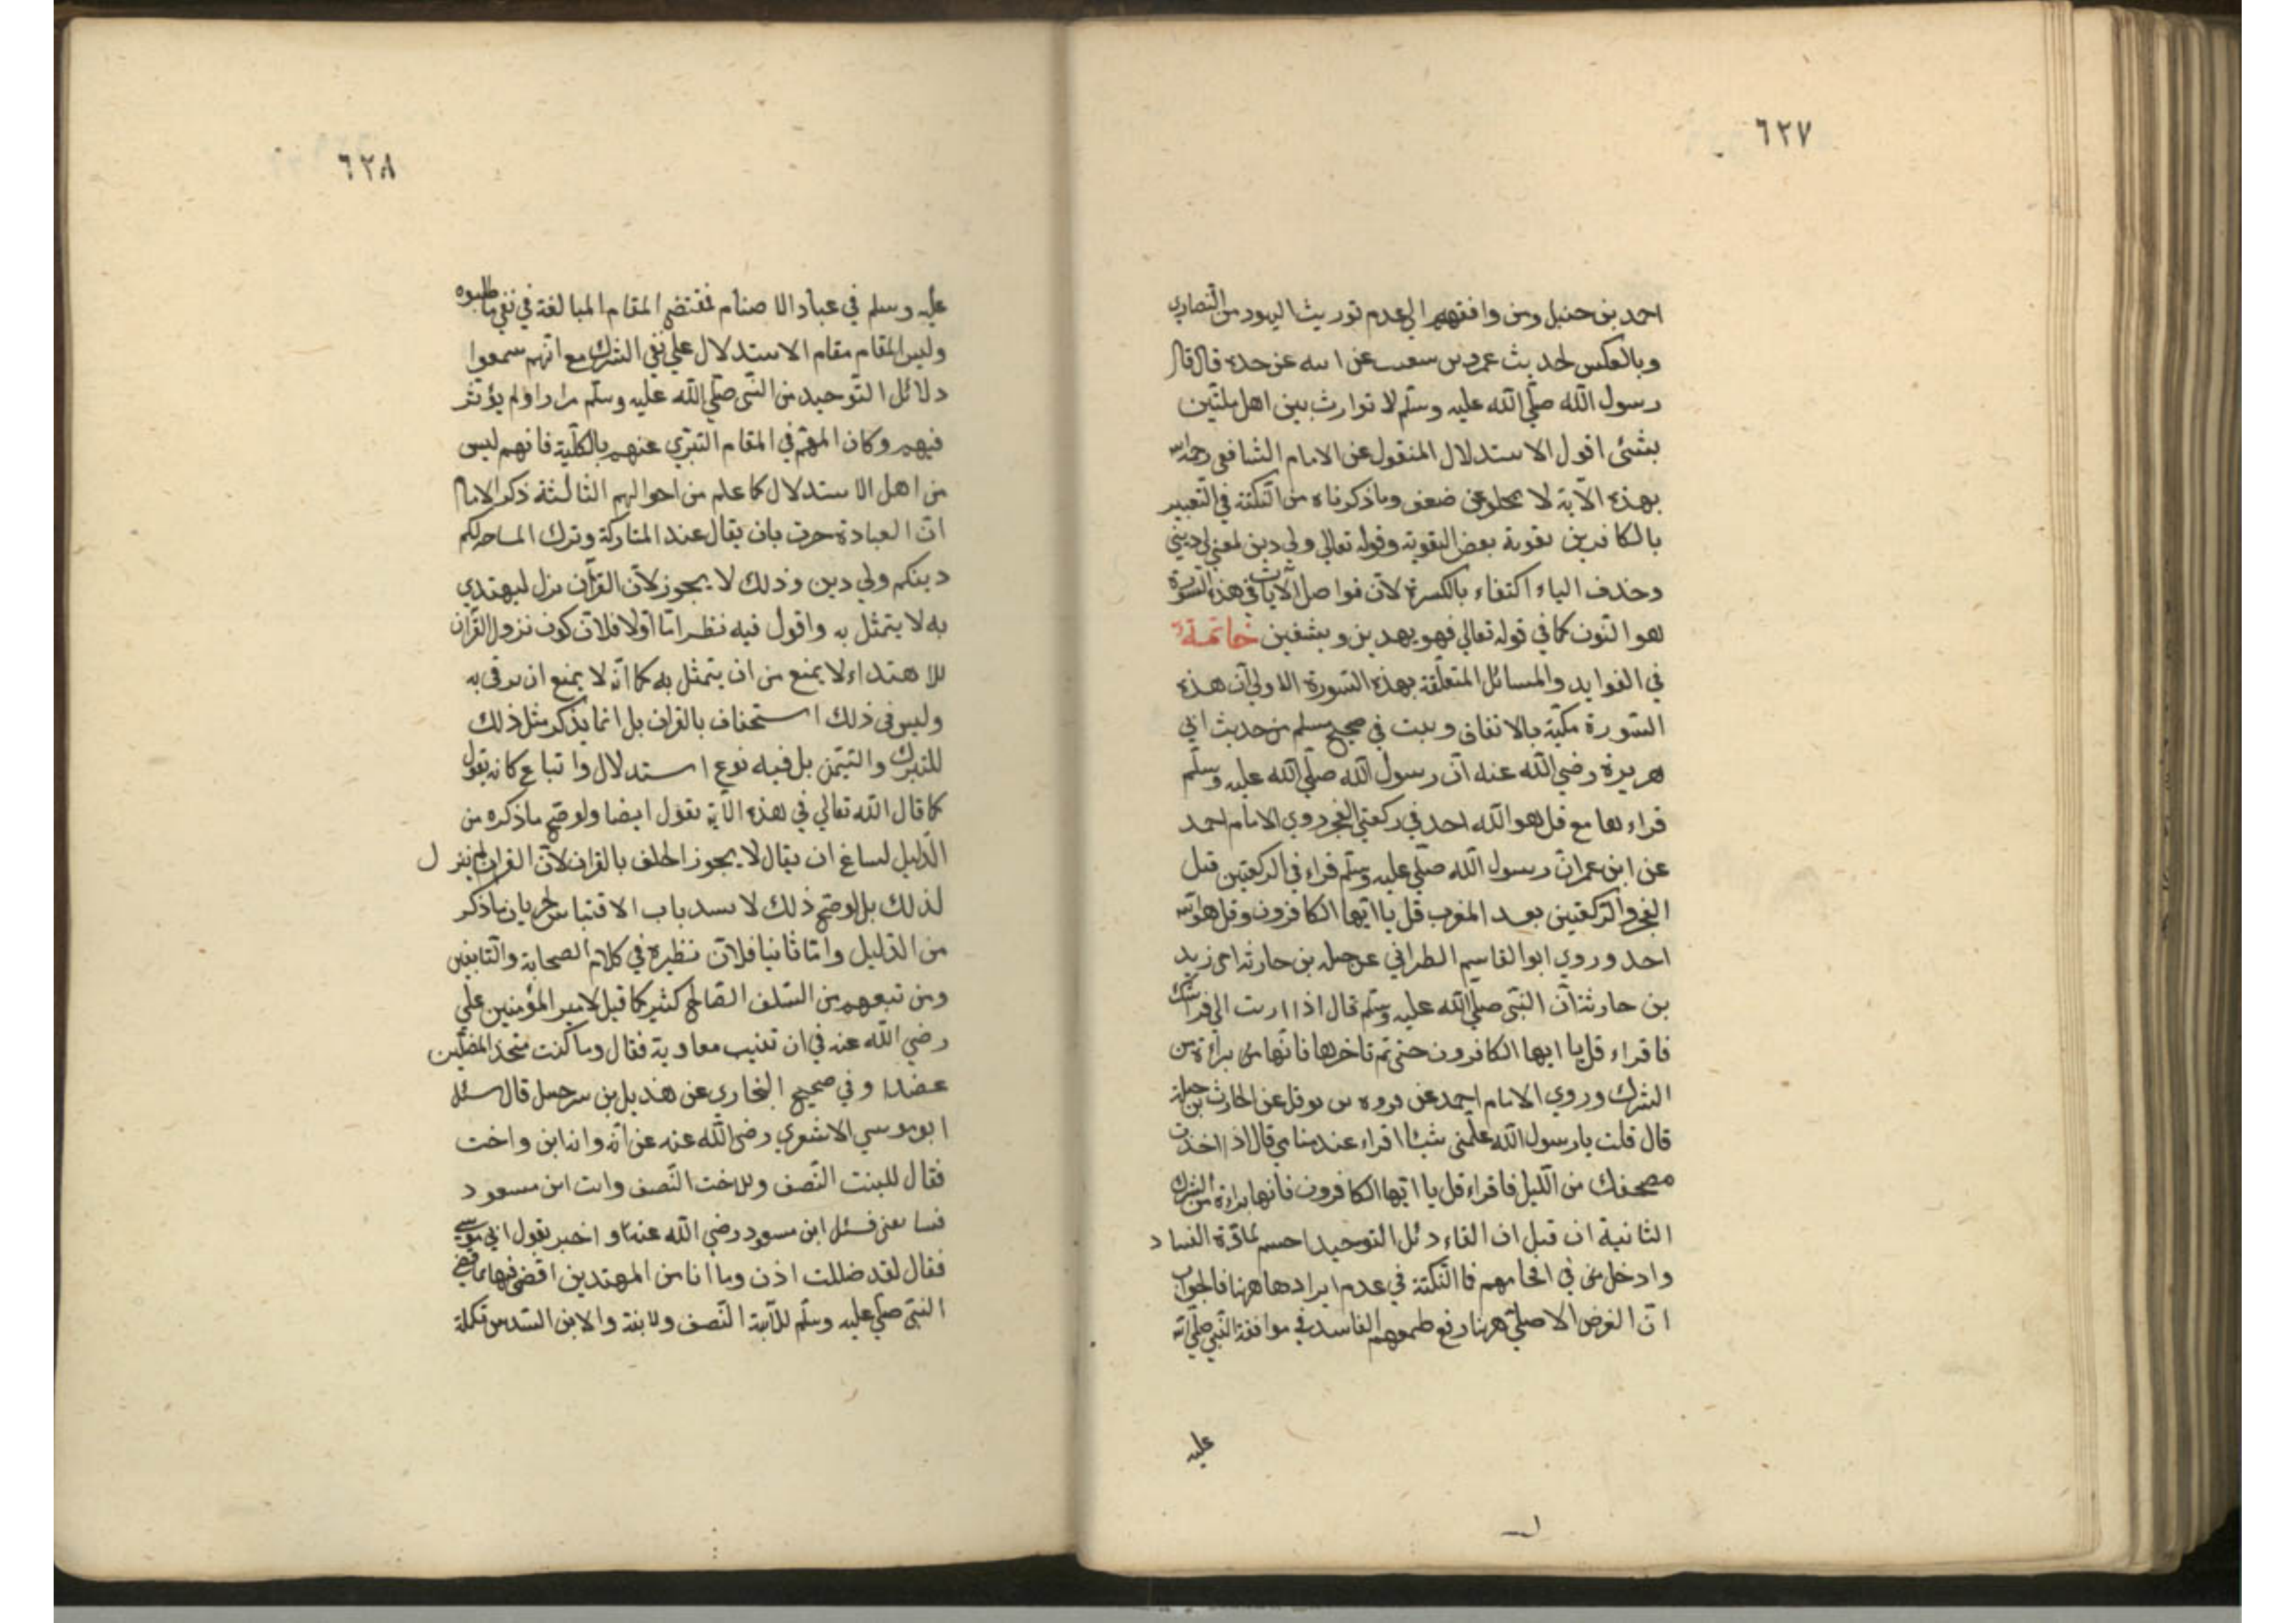 ٦٢٧
احمد بن حنبل ومن وافقهم الى عدم توريث اليهود من النصارى
وبالعكس لحديث عمرو بن سعيب عن ابيه عن جده قال قال
رسول الله صلّي الله عليه وسلّم لا توارث بين اهل ملتين
بشئ اقول الاستدلال المنقول عن الامام الشافعي رحمه الله
بهذه الآية لا يخلو عن ضعف وما ذكرناه من النكتة في التعبير
بالكافرين تقوية بعض التقوية وقوله تعالي ولي دين لمعني لي ديني
وحذف الياء اكتفاء بالكسرة لانّ فواصل الآيات في هذه السّورة
هو النّون كما في قوله تعالي فهو يهدين و يشفين خاتمة
في الفوايد والمسائل المتعلّقة بهذه السّورة الاولي انّ هذه
السّورة مكيّة بالاتفاق وبيت في صحيح مسلم من حديث ابي
هريرة رضي الله عنه انّ رسول الله صلّي الله عليه وسلّم
قراء بها مع قل هو الله احد في ركعتي الفجر وروي الامام احمد
عن ابن عمر انّ رسول الله صلّي عليه وسلّم قراء في الركعتين قبل
الفجر والركعتين بعد المغرب قل يا ايّها الكافرون وقل هو الله
احد وروي ابو القاسم الطبراني عن جبله بن حارثه اخي زيد
بن حارثة انّ النبّي صلّي الله عليه وسلّم قال اذا اويت الي فراشك
فاقراء قل يا ايها الكافرون حتى تم تاخرها فانّها من براءة من
الشرك وروي الامام احمد عن فروه بن نوفل عن الحارث بن جبلة
قال قلت يا رسول الله علّمني شيئا اقراء عند منامي قال اذا اخذت
مصحفك من اللّيل فاقراء قل يا ايّها الكافرون فانها براءة من الشرك
الثانية ان قيل ان القاء دئل التوحيد احسم لمادّة الفساد
وادخل من في افحامهم فما النّكتة في عدم ايرادها ههنا فالجواب
انّ الغرض الاصلي ههنا رفع طمعهم الفاسد في موافقة النّبي صلّي الله
عليه
٦٢٨
عليه وسلم في عباد الاصنام فمقتضي المقام المبالغة في نفي ما طلبوه
وليس المقام مقام الاستدلال علي نفي الشرك مع انّهم سمعوا
دلائل التّوحيد من النّبي صلّي الله عليه وسلّم مرارا ولم يؤثر
فيهم وكان المهمّ في المقام التبرّي عنهم بالكلّية فانهم ليس
من اهل الاستدلال كما علم من احوالهم الثالثة ذكر الامام
انّ العبادة جرت بان يقال عند المتاركة وترك المساحه لكم
دينكم ولي دين وذلك لا يجوز لانّ القرآن نزل ليهتدي
به لا يتمثل به واقول فيه نظر امّا اوّلا فلانّ كون نزول القرآن
للاهتداء لا يمنع من ان يتمثل به كما انّه لا يمنع ان يرقى به
وليس في ذلك استخفاف بالقران بل انما يذكر مثل ذلك
للتبرك والتيّمن بل فيه نوع استدلال واتباع كانه يقول
كما قال الله تعالي في هذه الآية نقول ايضا ولو صّح ما ذكره من
الدّليل لساغ ان يقال لا يجوز الحلف بالقران لانّ القران لم ينزل
لذلك بل لو صّح ذلك لا نسد باب الاقتباس لجريان ما ذكر
من الدّليل وامّا ثانيا فلانّ نظيره في كلام الصحابة والتّابعين
ومن تبعهم من السّلف الصّالح كثير كما قيل لامير المؤمنين علي
رضي الله عنه في ان تغيب معاوية فقال وما كنت متخذ المضلّين
عضدا وفي صحيح البخاري عن هذيل بن سرحبيل قال سئل
ابو موسي الاشعري رضي الله عنه عن ابنة وابنة ابن واخت
فقال للبنت النّصف وللاخت النّصف وات ابن مسعود
فسا يعني فسئل ابن مسعود رضي الله عنه و اخبر بقول ابي موسي
فقال لقد ضللت اذن وما انا من المهتدين اقضي فيها بما قضي
النبي صلّي عليه وسلّم للابنة النّصف ولابنة والابن السّدس تكملة